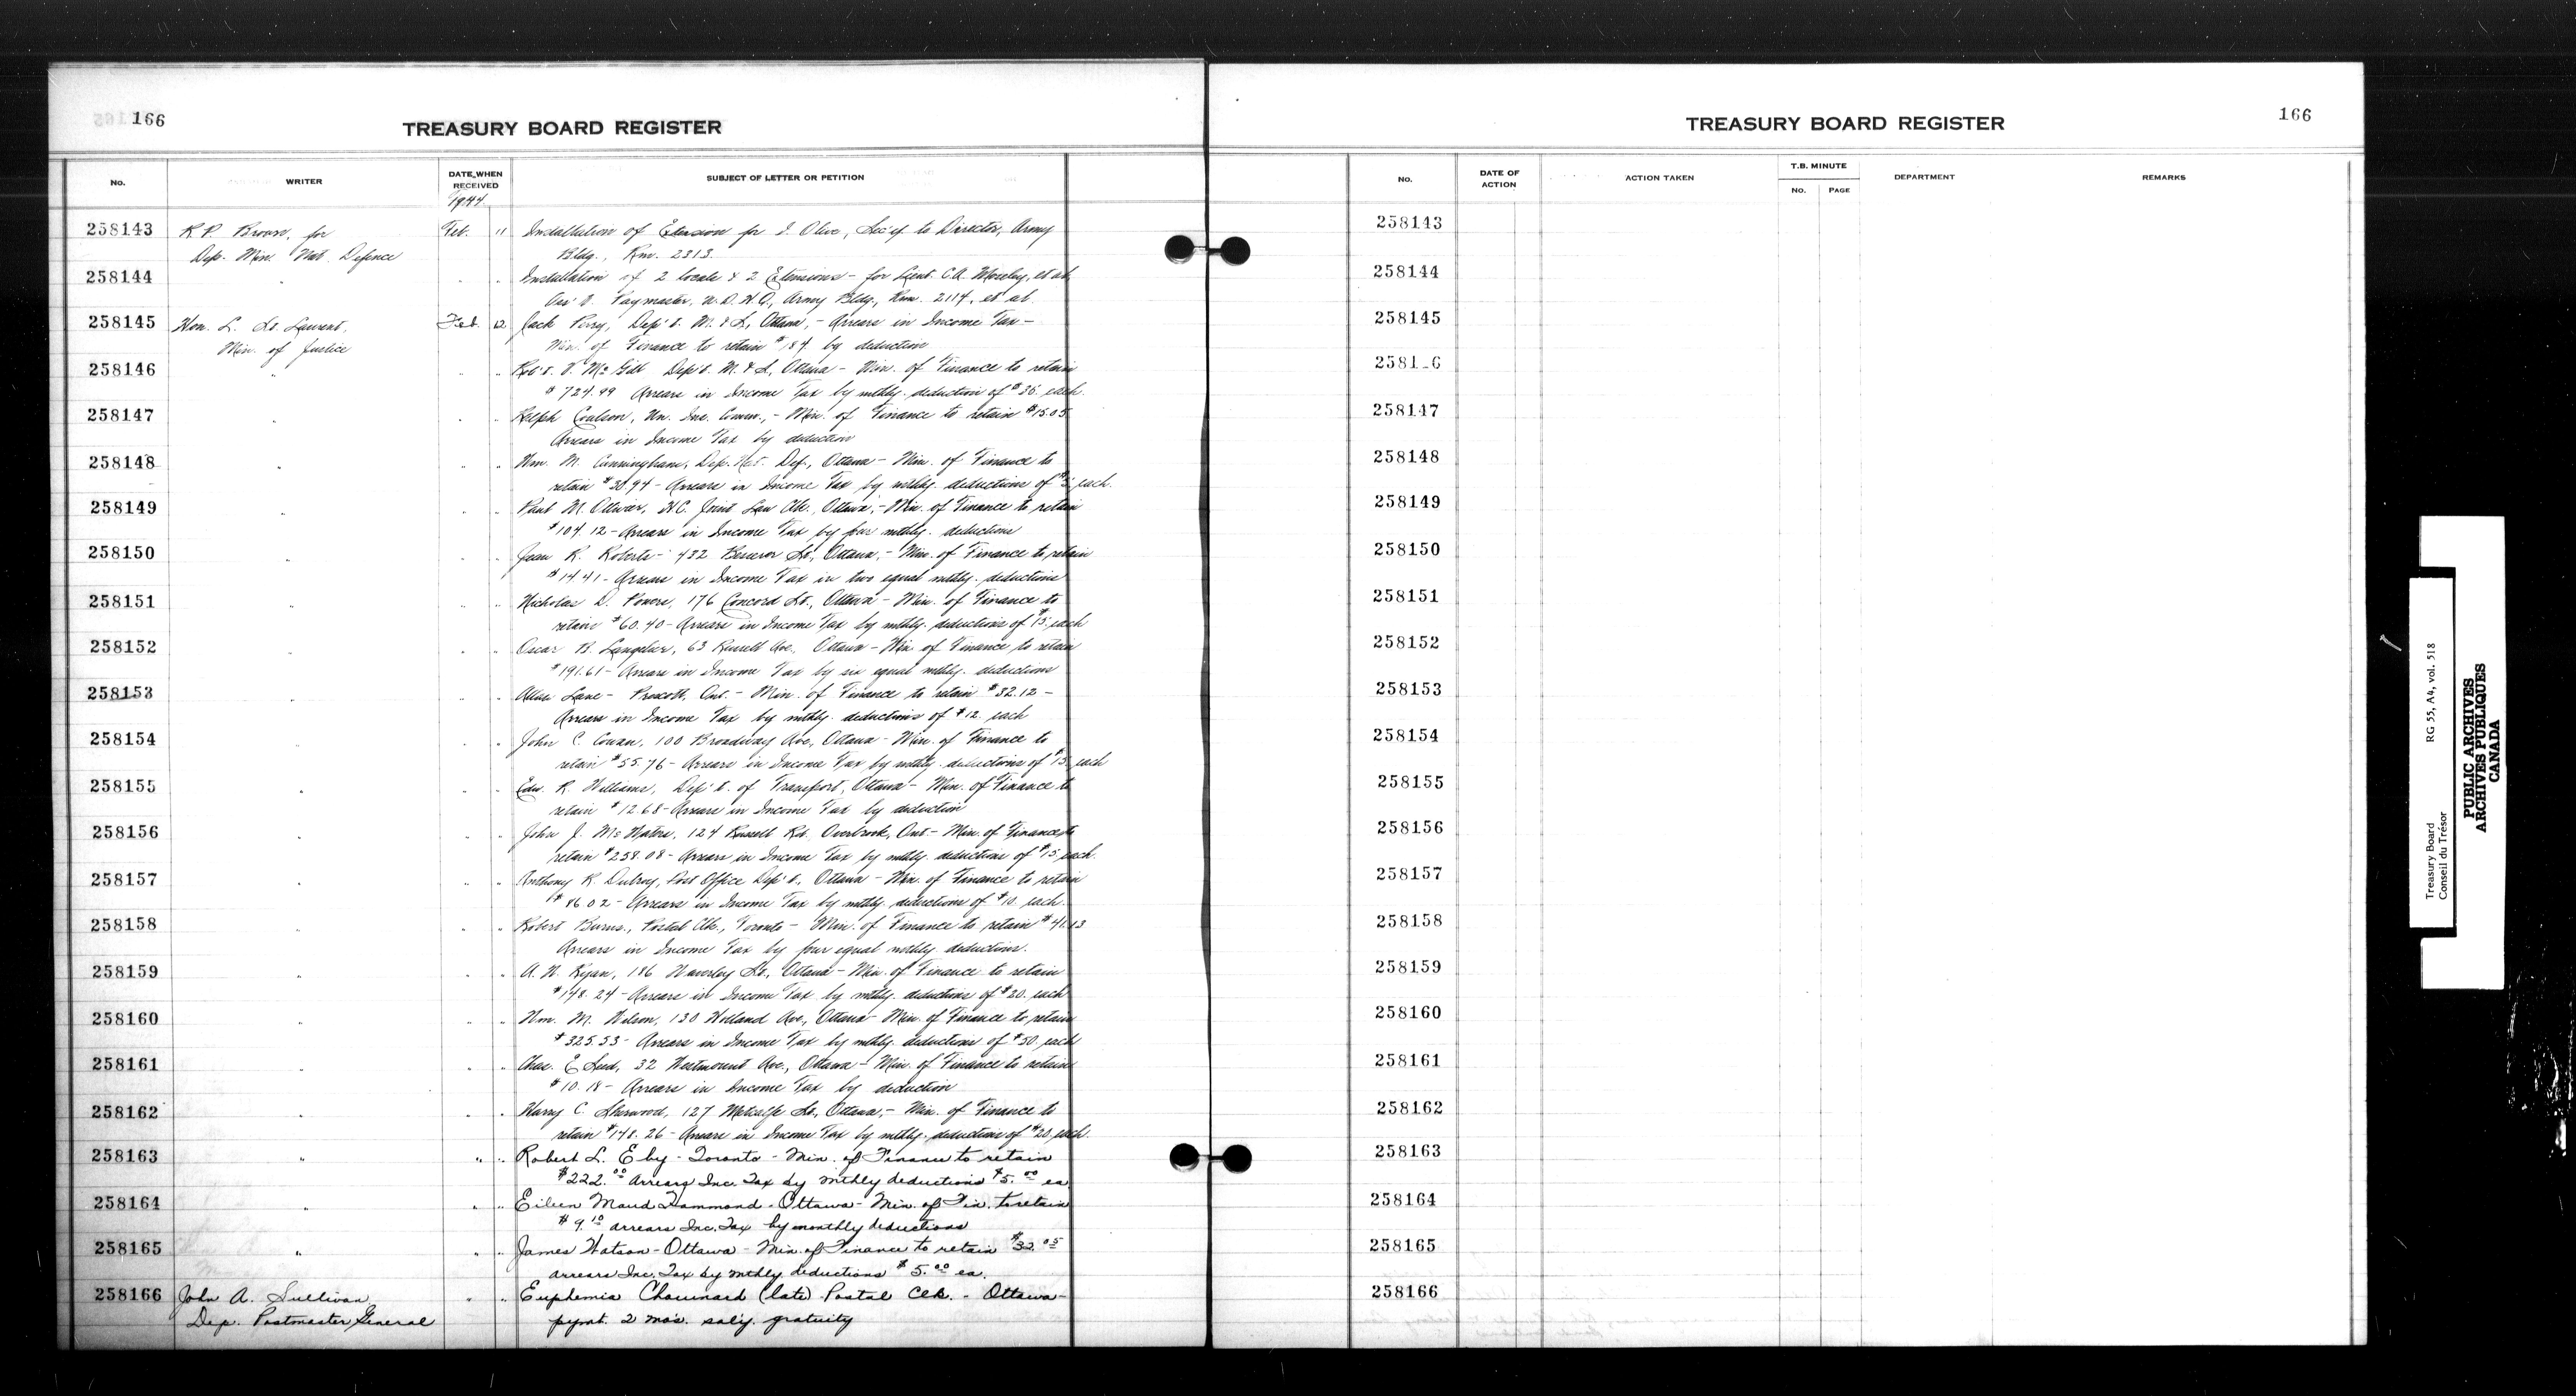 166
TREASURY BOARD REGISTER
No.
WRITER
DATE WHEN
RECEIVED
SUBJECT OF LETTER OR PETITION
1944
258143 R. P. Brown, for Feb. 11 Installation of Extension for I. Olive, Sec'y to Director, Army
Dep. Min. Nat. Defence Bldg., Rm. 2313.
258144 " " " Installation of 2 locals & 2 Extensions - for Lieut. C.A. Moseley, et al
Ass't. Paymaster, N.D.H.Q., Army Bldg., Rm. 2114, et al.
258145 Hon. L. St. Laurent, Feb. 12 Jack Perry, Dep't. M. & S., Ottawa, - Arrears in Income Tax -
Min. of Justice Min. of Finance to retain $184 by deduction
258146 " " " Rob't. McGill Dep't. M. & S., Ottawa - Min. of Finance to retain
$724.99 Arrears in Income Tax by mthly. deduction of $36. each.
258147 " " " Ralph Coulson, Un. Ins. Comm., - Min. of Finance to retain $15.05
Arrears in Income Tax by deduction
258148 " " " Wm. M. Cunningham, Dep. Nat. Def., Ottawa - Min. of Finance to
retain $30.94 - Arrears in Income Tax by mthly. deductions of each.
258149 " " " Paul M. Ollivier, H.C. Joint Law Clk., Ottawa, - Min. of Finance to retain
$104.12 - Arrears in Income Tax by four mthly. deductions
258150 " " " Jean R. Roberts - 432 Besserer St., Ottawa, - Min. of Finance to retain
$14.41 - Arrears in Income Tax in two equal mthly. deductions
258151 " " " Nicholas D. Powers, 176 Concord St., Ottawa - Min. of Finance to
retain $60.40 - Arrears in Income Tax by mthly. deductions of $15. each
258152 " " " Oscar B. Langelier, 63 Russell Ave., Ottawa - Min. of Finance to retain
$191.61 - Arrears in Income Tax by six equal mthly. deductions
258153 " " " Lane - Prescott, Ont. - Min. of Finance to retain $32.12 -
Arrears in Income Tax by mthly. deductions of $12. each
258154 " " " John C. Cowan, 100 Broadway Ave., Ottawa - Min. of Finance to
retain $55.76 - Arrears in Income Tax by mthly. deductions of $15. each
258155 " " " Edw. R. Williams, Dep't. of Transport, Ottawa - Min. of Finance to
retain $12.68 - Arrears in Income Tax by deduction
258156 " " " John J. McWaters, 124 Russell Rd. Overbrook, Ont. - Min. of Finance to
retain $258.08 - Arrears in Income Tax by mthly. deductions of $15. each.
258157 " " " Anthony R. Dulroy, Post Office Dep't., Ottawa - Min. of Finance to retain
$86.02 - Arrears in Income Tax by mthly. deductions of $10. each.
258158 " " " Robert Burns, Postal Clk., Toronto - Min. of Finance to retain $41.13
Arrears in Income Tax by four equal mthly deductions.
258159 " " " A. N. Ryan, 186 Waverley St., Ottawa - Min. of Finance to retain
$148.24 - Arrears in Income Tax by mthly. deductions of $20. each
258160 " " " Wm. M. Wilson, 130 Holland Ave., Ottawa - Min. of Finance to retain
$325.53 - Arrears in Income Tax by mthly. deductions of $50. each
258161 " " " Chas. E. 32 Westmount Ave., Ottawa - Min. of Finance to retain
$10.18 - Arrears in Income Tax by deduction
258162 " " " Harry C. Sherwood, 127 Metcalfe St., Ottawa, - Min. of Finance to
retain $148.26 - Arrears in Income Tax by mthly. deductions of $20. each.
258163 " " " Robert L. Eby - Toronto - Min. of Finance to retain
$222.00 Arrears Inc. Tax by mthly deductions $5.00 ea.
258164 " " " Eileen Maud Hammond - Ottawa - Min. of Fin. to retain
$9.10 arrears Inc. Tax by monthly deductions
258165 " " " James Watson - Ottawa - Min. of Finance to retain $32.05
arrears Inc. Tax by mthly. deductions $5.00 ea.
258166 John A. Sullivan " " Euphemia Chouinard (late) Postal Clk. - Ottawa -
Dep. Postmaster General pymt. 2 mos. sal'y. gratuity
166
TREASURY BOARD REGISTER
No.
DATE OF
ACTION
ACTION TAKEN
T.B. MINUTE
No.
PAGE
DEPARTMENT
REMARKS
258143
258144
258145
2581 6
258147
258148
258149
258150
258151
258152
258153
258154
258155
258156
258157
258158
258159
258160
258161
258162
258163
258164
258165
258166
Treasury Board
Conseil du Trésor
RG 55, A4, vol. 518
PUBLIC ARCHIVES
ARCHIVES PUBLIQUES
CANADA